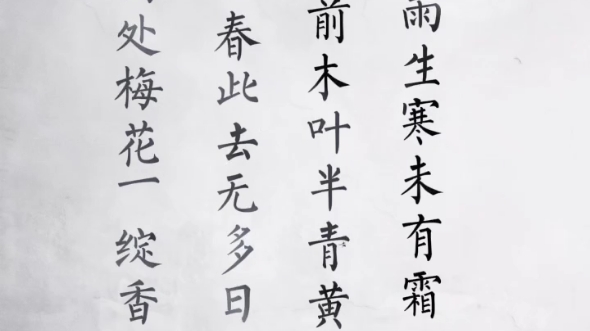 雨生寒未有霜
前木叶半青黄
春此去无多日
处梅花一绽香